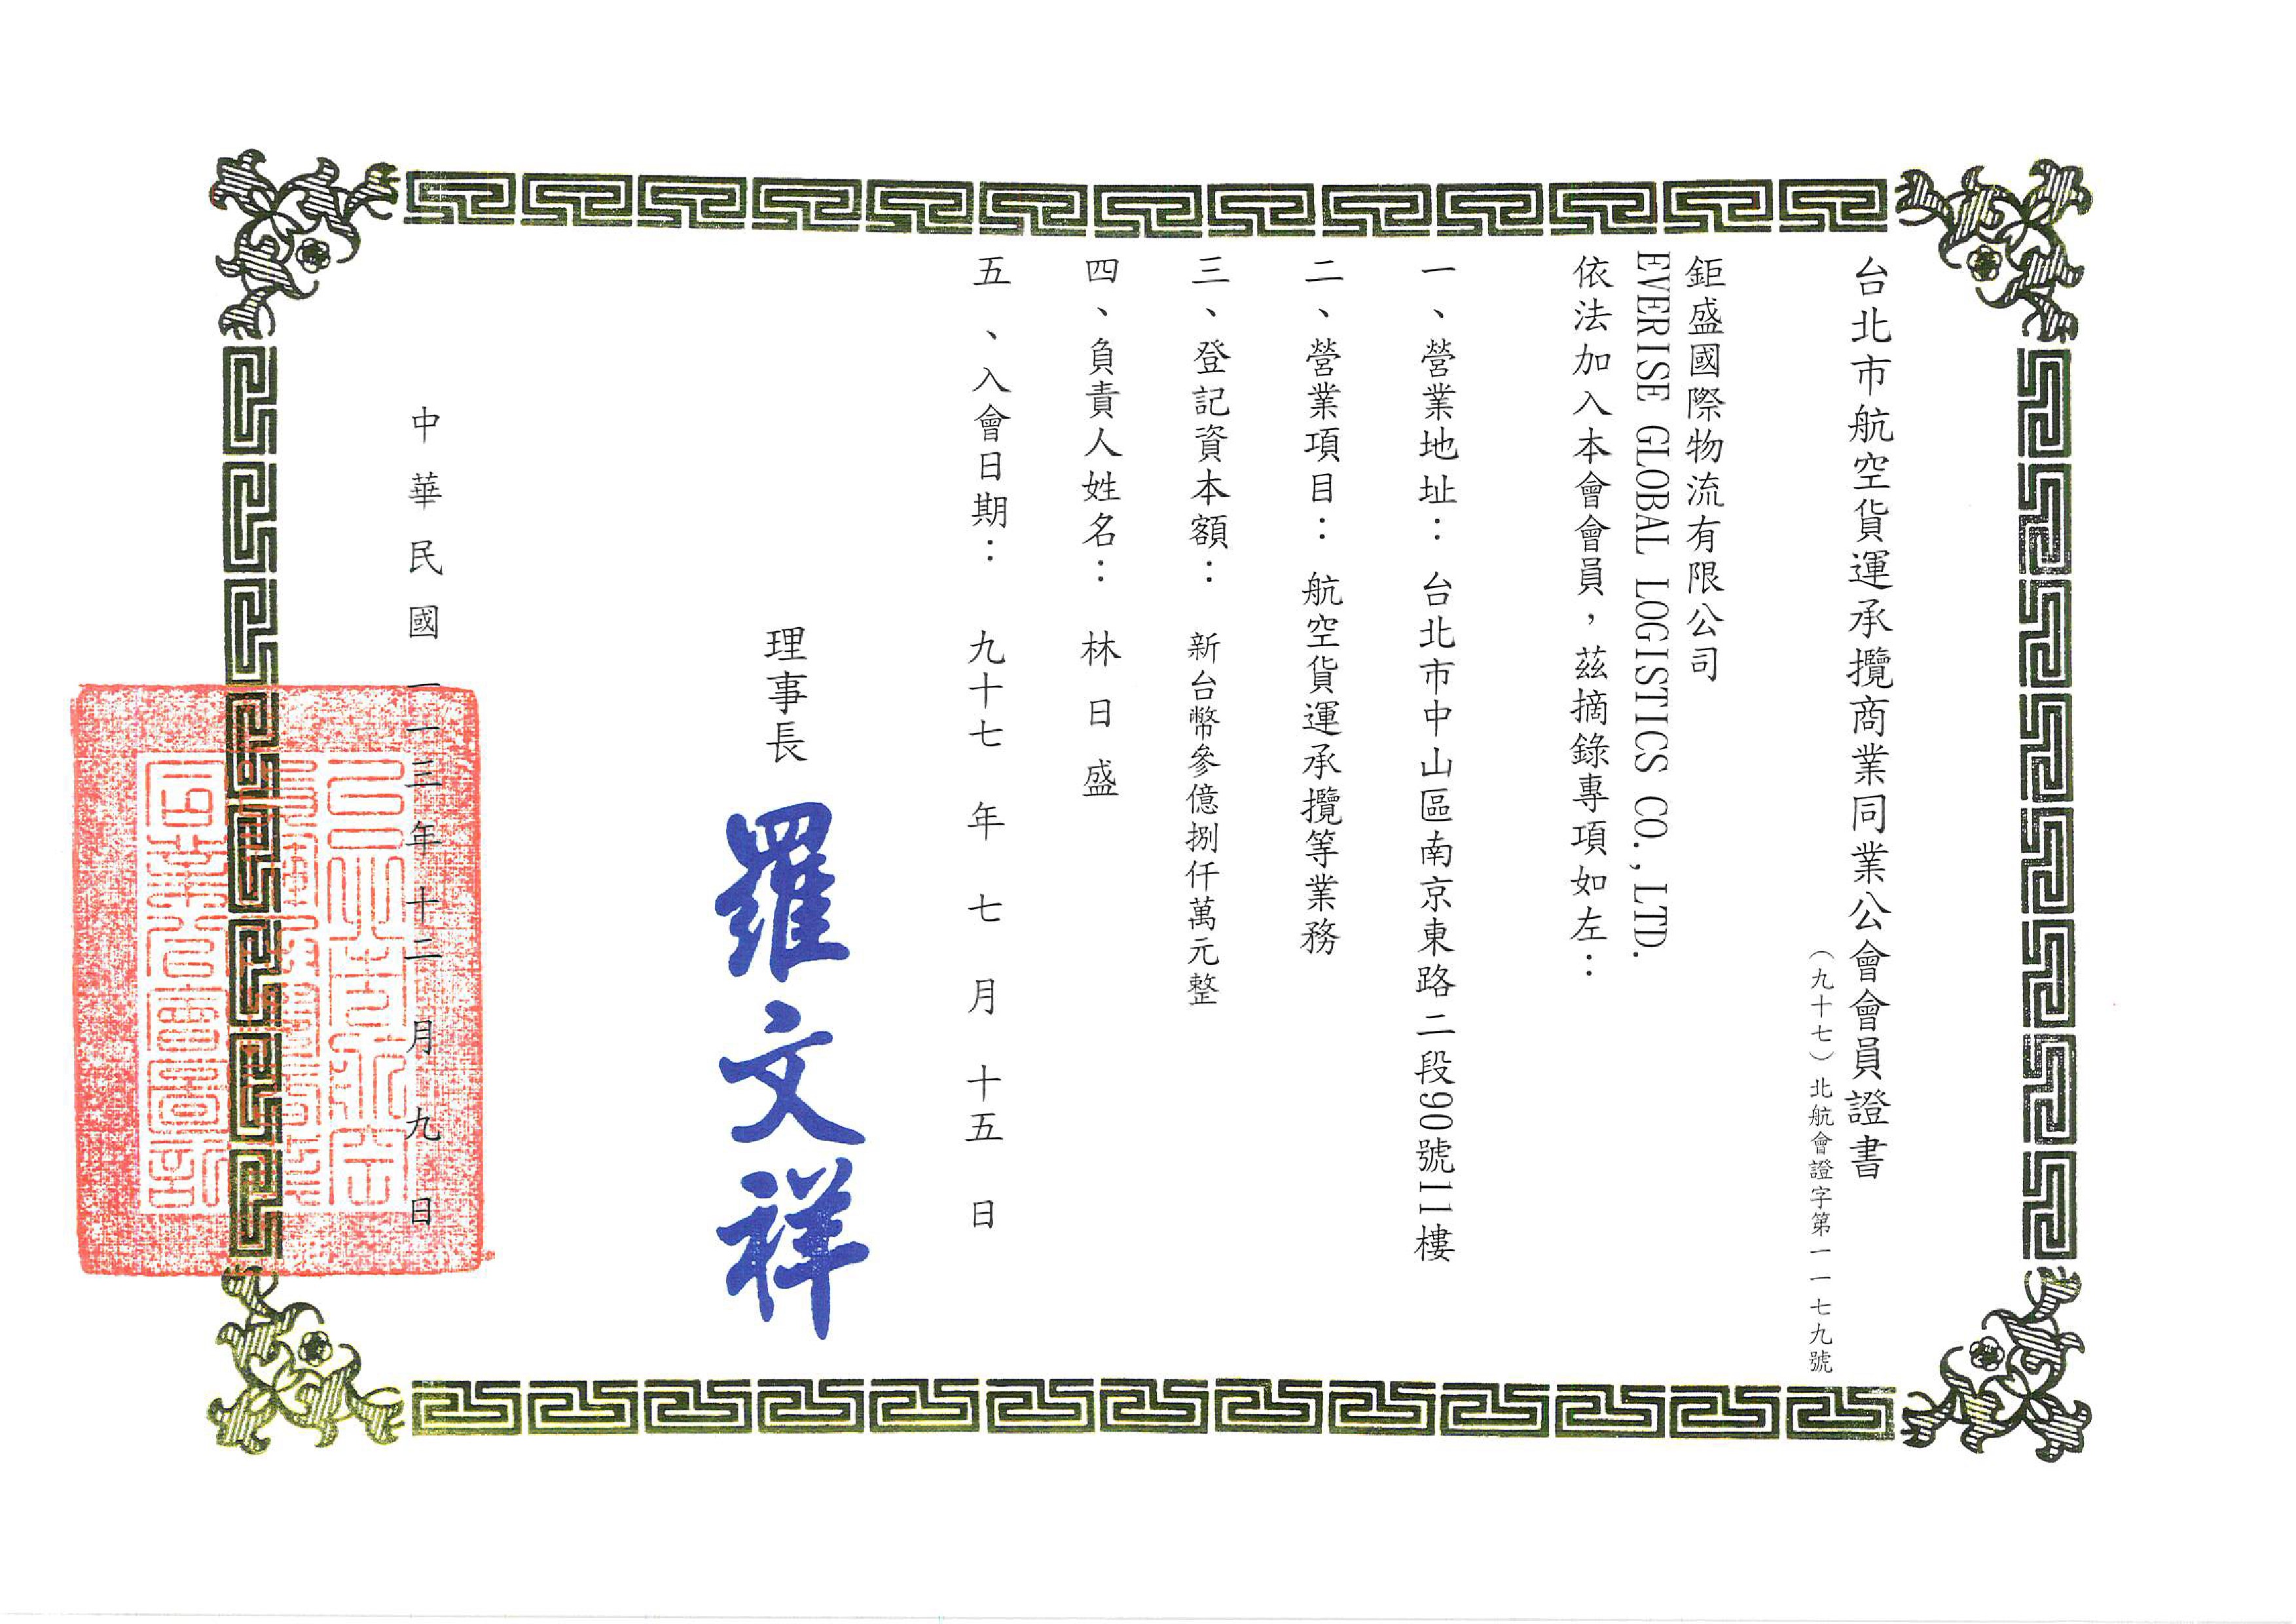 台北市航空貨運承攬商業同業公會會員證書
（九十七）北航會證字第一一七九號
鉅盛國際物流有限公司
EVERISE GLOBAL LOGISTICS CO.,LTD.
依法加入本會會員，茲摘錄專項如左：
一、營業地址：台北市中山區南京東路二段90號11樓
二、營業項目：航空貨運承攬等業務
三、登記資本額：新台幣參億捌仟萬元整
四、負責人姓名：林日盛
五、入會日期：九十七年七月十五日
理事長 羅文祥
中華民國一一三年十二月九日